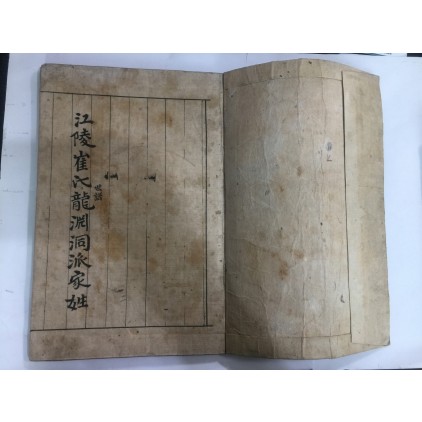 江陵崔氏龍渊洞派家姓